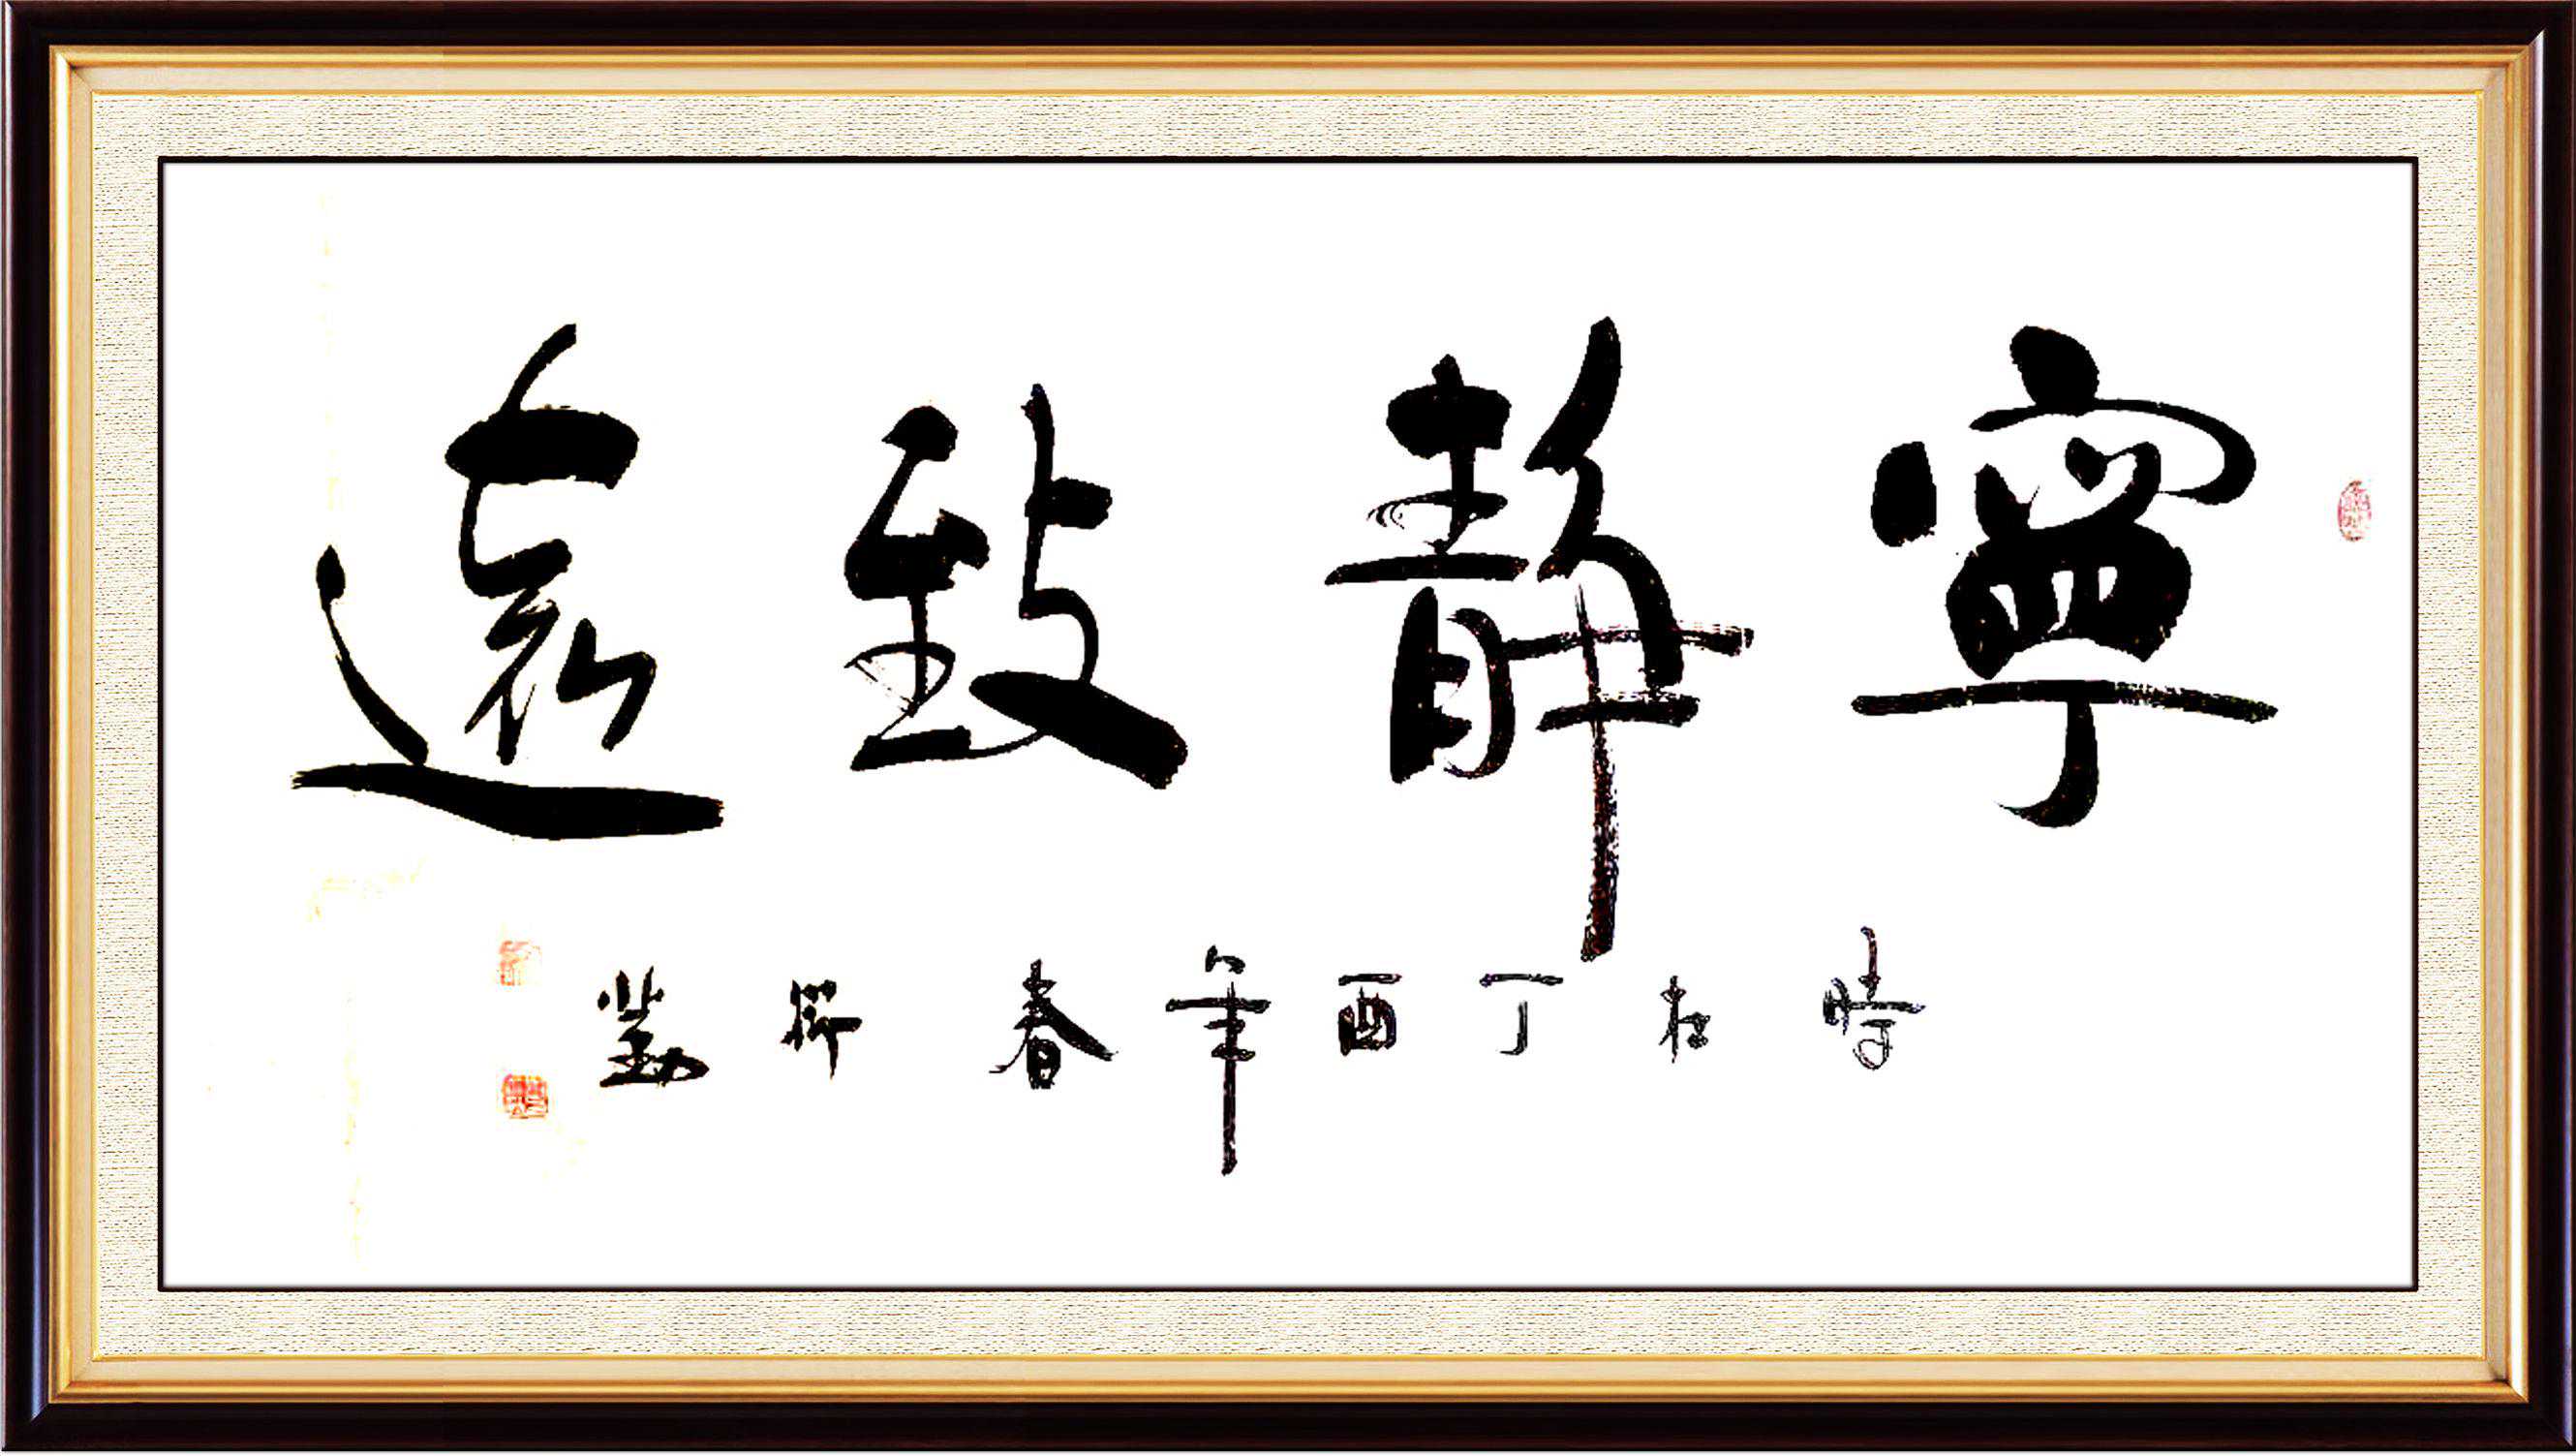 寧靜致遠
時在丁酉年春